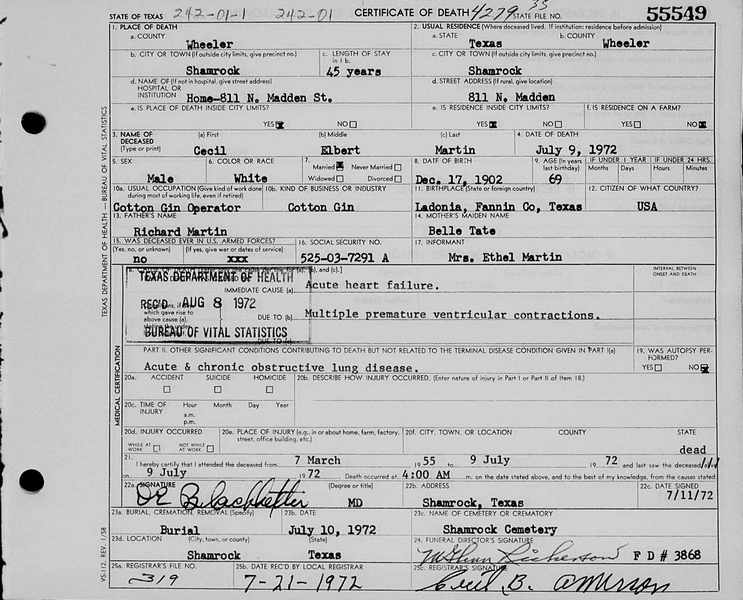 STATE OF TEXAS 242-01-1 242-01 CERTIFICATE OF DEATH 4279 33 STATE FILE NO. 55549
1. PLACE OF DEATH
a. COUNTY
Wheeler
2. USUAL RESIDENCE (Where deceased lived. If institution: residence before admission)
a. STATE
Texas
b. COUNTY
Wheeler
b. CITY OR TOWN (If outside city limits, give precinct no.)
Shamrock
c. LENGTH OF STAY
in 1 b.
45 years
c. CITY OR TOWN (If outside city limits, give precinct no.)
Shamrock
d. NAME OF (If not in hospital, give street address)
HOSPITAL OR
INSTITUTION
Home-811 N. Madden St.
d. STREET ADDRESS (If rural, give location)
811 N. Madden
e. IS PLACE OF DEATH INSIDE CITY LIMITS?
YES NO
e. IS RESIDENCE INSIDE CITY LIMITS?
YES NO
f. IS RESIDENCE ON A FARM?
YES NO
3. NAME OF
DECEASED
(Type or print)
(a) First
Cecil
(b) Middle
Elbert
(c) Last
Martin
4. DATE OF DEATH
July 9, 1972
5. SEX
Male
6. COLOR OR RACE
White
7.
Married Never Married
Widowed Divorced
8. DATE OF BIRTH
Dec. 17, 1902
9. AGE (In years
last birthday)
69
IF UNDER 1 YEAR
Months Days
IF UNDER 24 HRS.
Hours Min.
10a. USUAL OCCUPATION (Give kind of work done
during most of working life, even if retired)
Cotton Gin Operator
10b. KIND OF BUSINESS OR INDUSTRY
Cotton Gin
11. BIRTHPLACE (State or foreign country)
Ladonia, Fannin Co, Texas
12. CITIZEN OF WHAT COUNTRY?
USA
13. FATHER'S NAME
Richard Martin
14. MOTHER'S MAIDEN NAME
Belle Tate
15. WAS DECEASED EVER IN U.S. ARMED FORCES?
(Yes, no, or unknown) (If yes, give war or dates of service)
no xxx
16. SOCIAL SECURITY NO.
525-03-7291 A
17. INFORMANT
Mrs. Ethel Martin
(b), and (c).]
INTERVAL BETWEEN
ONSET AND DEATH
TEXAS DEPARTMENT OF HEALTH
IMMEDIATE CAUSE (a)
Acute heart failure.
REC'D AUG 8 1972
which gave rise to
above cause (a),
DUE TO (b)
Multiple premature ventricular contractions.
BUREAU OF VITAL STATISTICS
DUE TO (c)
PART II. OTHER SIGNIFICANT CONDITIONS CONTRIBUTING TO DEATH BUT NOT RELATED TO THE TERMINAL DISEASE CONDITION GIVEN IN PART I(a)
Acute & chronic obstructive lung disease.
19. WAS AUTOPSY PERFORMED?
YES NO
20a. ACCIDENT SUICIDE HOMICIDE
20b. DESCRIBE HOW INJURY OCCURRED. (Enter nature of injury in Part I or Part II of item 18.)
20c. TIME OF
INJURY
Hour Month Day Year
a.m.
p.m.
20d. INJURY OCCURRED
WHILE AT
WORK
NOT WHILE
AT WORK
20e. PLACE OF INJURY (e.g., in or about home, farm, factory,
street, office building, etc.)
20f. CITY, TOWN, OR LOCATION COUNTY STATE
dead
21.
I hereby certify that I attended the deceased from 7 March 1955 to 9 July 1972 and last saw the deceased
on 9 July 1972 Death occurred at 4:00 AM m. on the date stated above, and to the best of my knowledge, from the causes stated.
22a. SIGNATURE (Degree or title)
MD
22b. ADDRESS
Shamrock, Texas
22c. DATE SIGNED
7/11/72
23a. BURIAL, CREMATION, REMOVAL (Specify)
Burial
23b. DATE
July 10, 1972
23c. NAME OF CEMETERY OR CREMATORY
Shamrock Cemetery
23d. LOCATION (City, town, or county) (State)
Shamrock Texas
24. FUNERAL DIRECTOR'S SIGNATURE
Richerson F D # 3868
25a. REGISTRAR'S FILE NO.
319
25b. DATE REC'D BY LOCAL REGISTRAR
7-21-1972
25c. REGISTRAR'S SIGNATURE
Cecil B.
TEXAS DEPARTMENT OF HEALTH — BUREAU OF VITAL STATISTICS
MEDICAL CERTIFICATION
VS-112, REV. 1/58